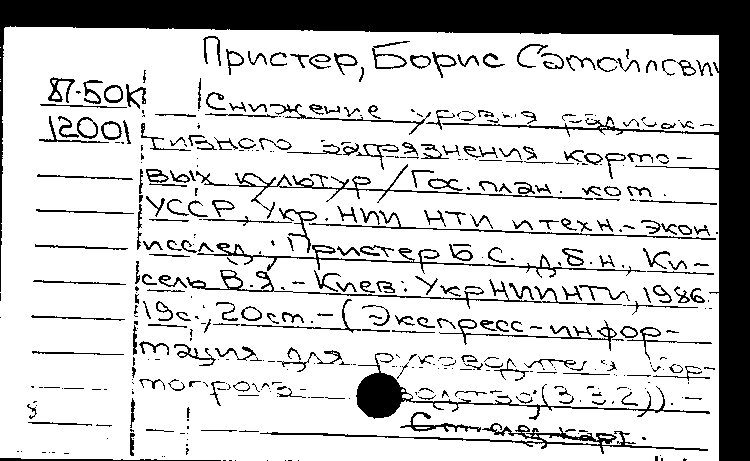 Пристер, Борис Самойлович
87-50К Снижение уровня радиоак-
12001 тивного загрязнения кормо-
вых культур / Гос. план. ком.
УССР, Укр. НИИ НТИ и техн.-экон.
исслед.; Пристер Б.С., д.б.н., Ки-
сель В.Я. - Киев: УкрНИИНТИ, 1986.-
19с.; 20см. - (Экспресс-инфор-
мация для руководителя /
топроиз- водство; (3.3.2)). -
8 См. след. карт.